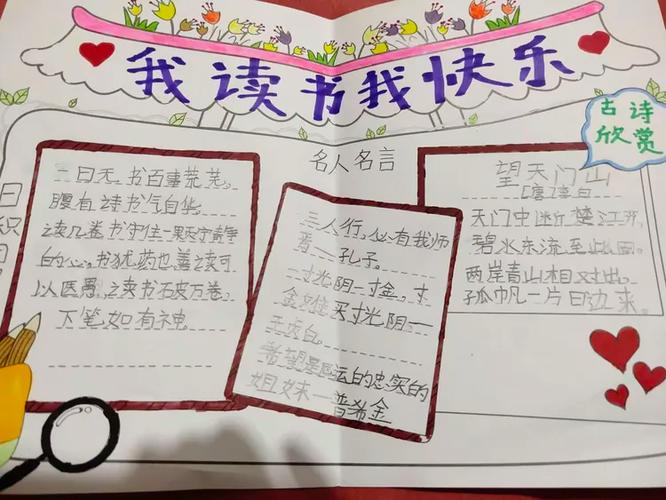 我读书我快乐
古诗
欣赏
日
识
名人名言
三日不书百事荒芜。
腹有诗书气自华
读几卷书守住一
的心。书犹药也善读可
以医愚。读书破万卷,
下笔如有神
三人行,必有我师
一孔子。
一寸光阴一寸金,寸
金难买寸光阴。一
无
希望是厄运的忠实的
姐妹一普希金
望天门山
[唐]李白
天门中断楚江开,
碧水东流至此回。
两岸青山相对出,
孤帆一片日边来。